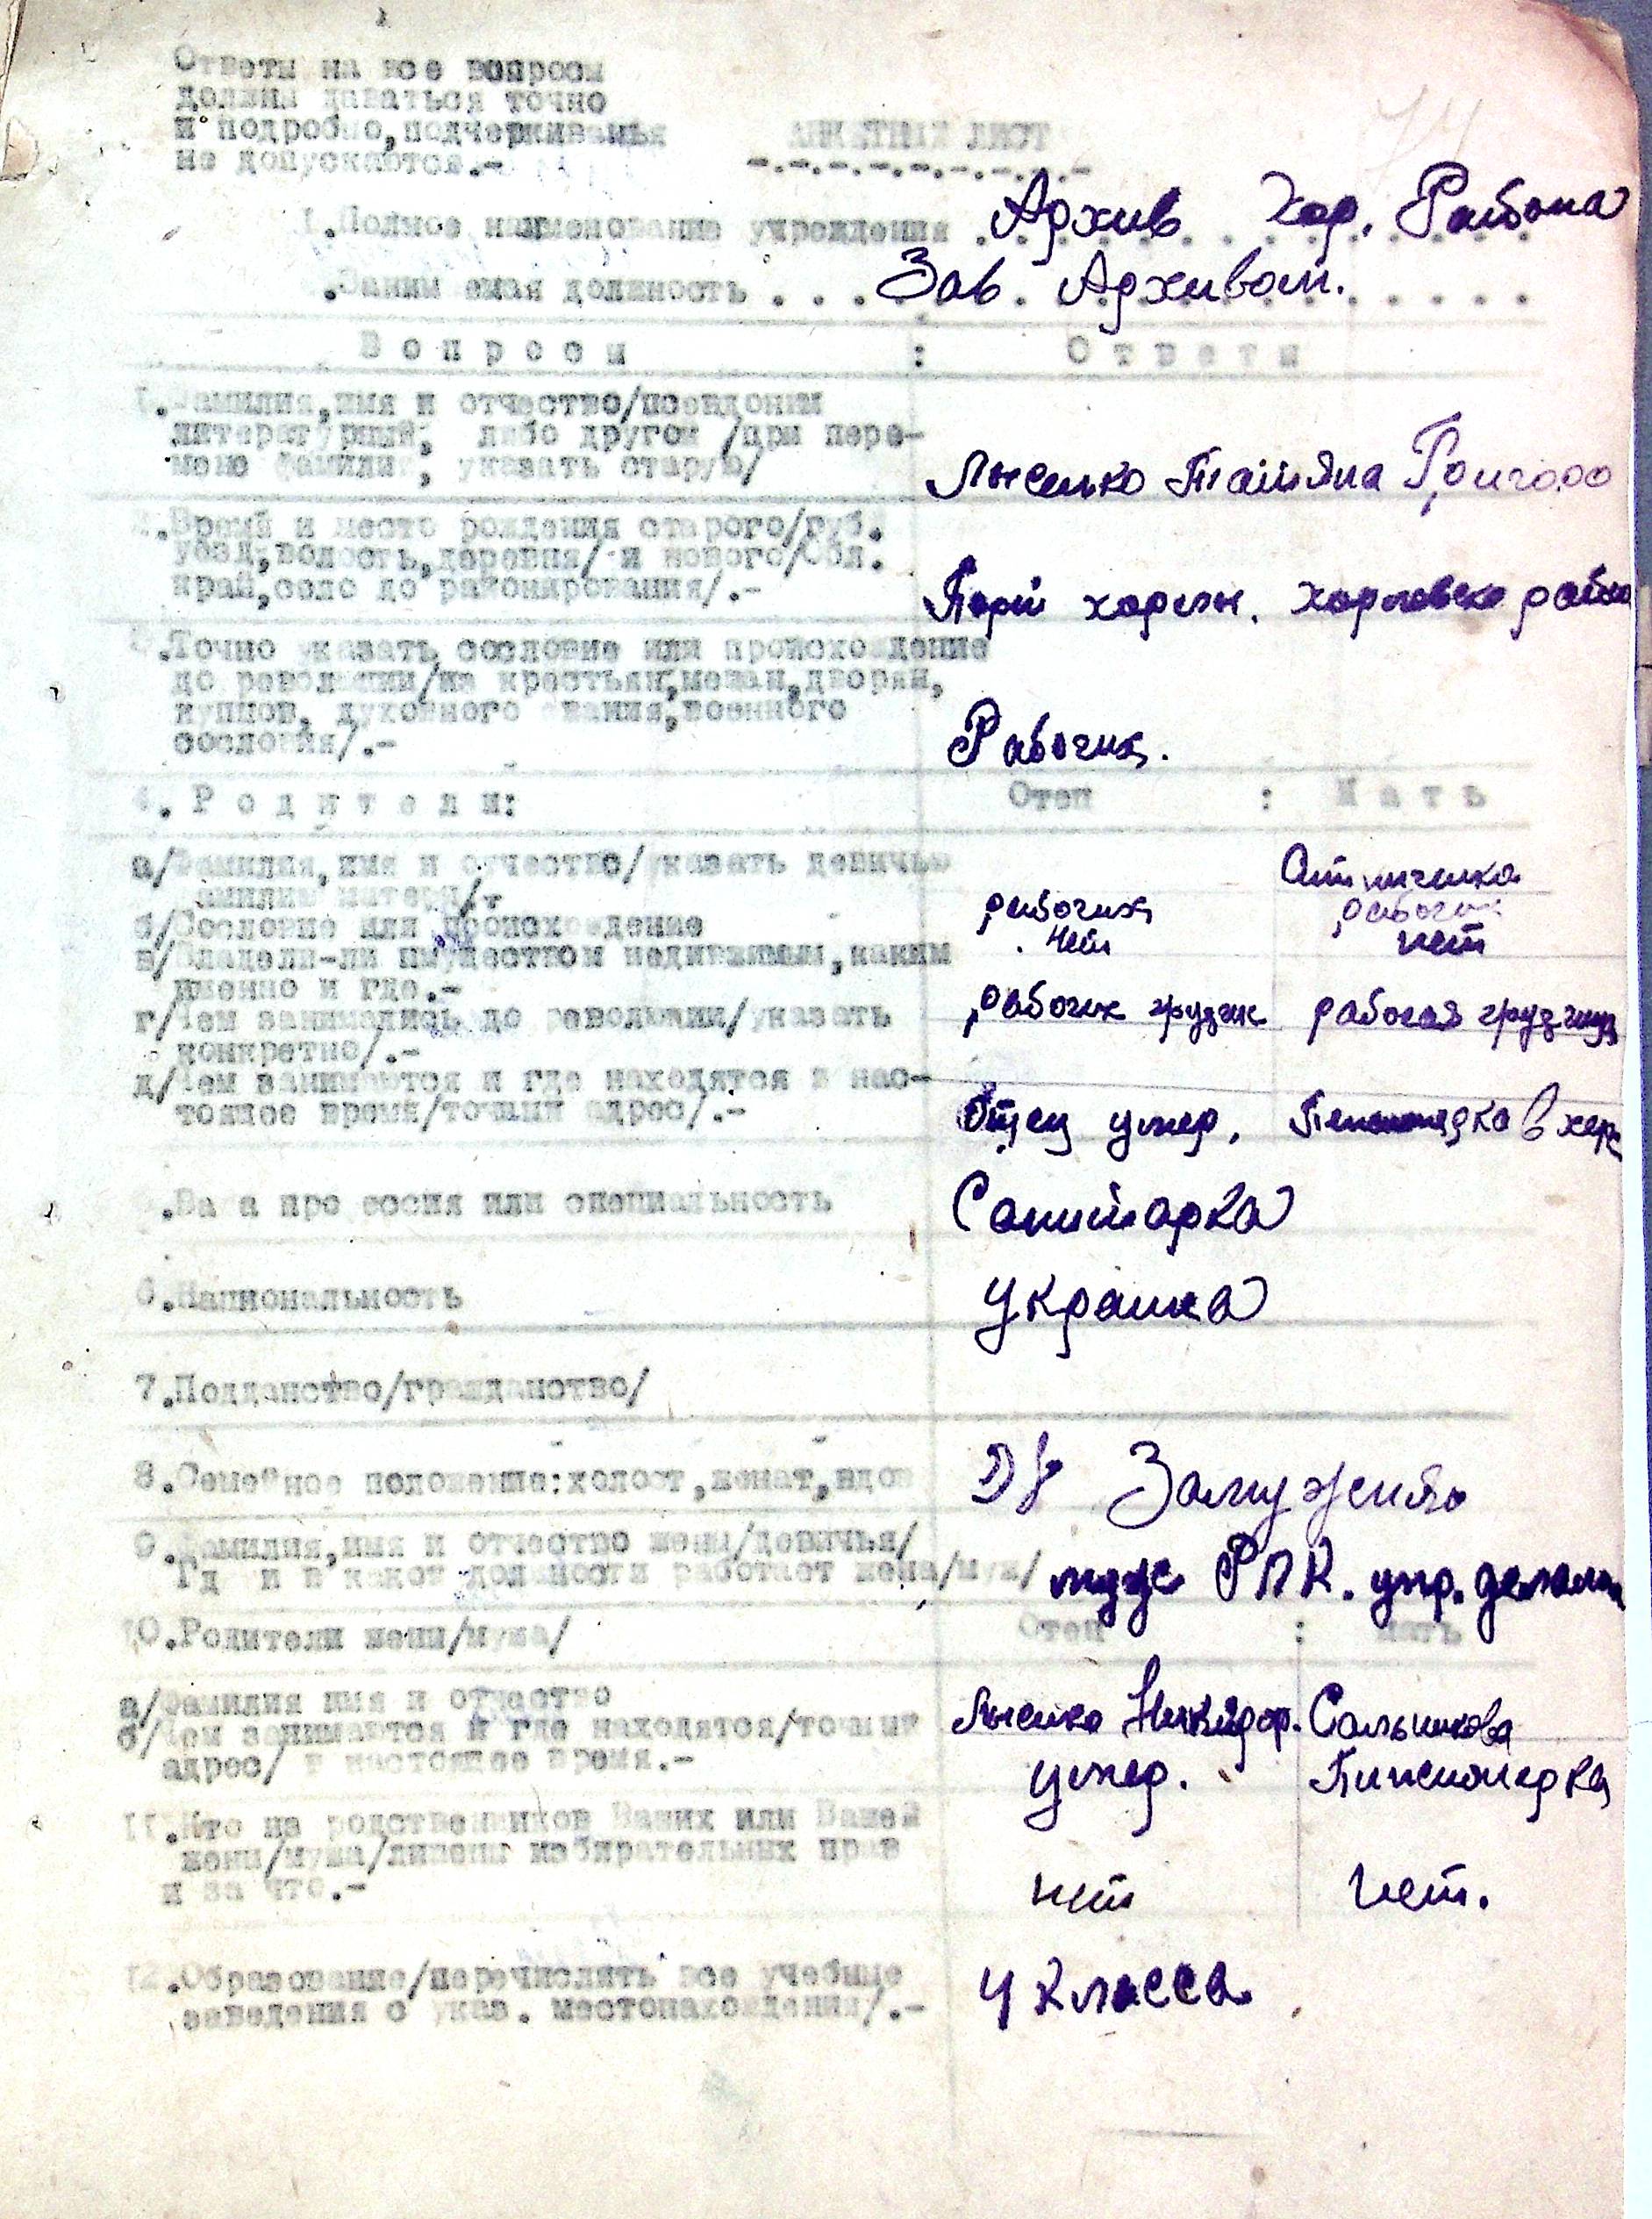 Ответы на все вопросы
должны даваться точно
и подробно, подчеркиванья
не допускаются.-
АНКЕТНЫЙ ЛИСТ
74
1. Полное наименование учреждения . Архив Хор. Района
. Занимаемая должность . . . Зав. Архивом.
Вопросы : Ответы
1. Фамилия, имя и отчество/псевдоним
литературный, либо другой /при пере-
мене фамилии, указать старую/
Лысенко Татьяна Григоро
. Время и место рождения старого/губ.
уезд, волость, деревня/ и нового/Обл.
край, село до районирования/.-
Порт хорлы. хорловско района
3. Точно указать сословие или происхождение
до революции/из крестьян, мещан, дворян,
купцов, духовного звания, военного
сословия/.-
Рабочих.
4. Родители: Отец : Мать
а/Фамилия, имя и отчество/указать девичью
фамилию матери/.
б/Сословие или происхождение рабочих рабочих
в/Владели-ли имуществом недвижимым, каким нет нет
именно и где.-
г/Чем занимались до революции/указать рабочих грузчик рабочая грузчица
конкретно/.-
д/Чем занимаются и где находятся в нас-
тоящее время/точный адрес/.- Отец умер, в хор
. Ваша профессия или специальность Санитарка
6. Национальность Украинка
7. Подданство/гражданство/
8. Семейное положение: холост, женат, вдов Замужняя
9. Фамилия, имя и отчество жены/девичья/
Где и в какой должности работает жена/муж/ муж упр. делами
10. Родители жены/мужа/ Отец : Мать
а/Фамилия имя и отчество Лысенко Никифор. Сальникова
б/Чем занимаются и где находятся/точный
адрес/ в настоящее время.- умер. Пинсионерка
11. Кто из родственников Ваших или Вашей
жены/мужа/лишены избирательных прав
и за что.- нет нет.
12. Образование/перечислить все учебные 4 класса
заведения с указ. местонахождения/.-